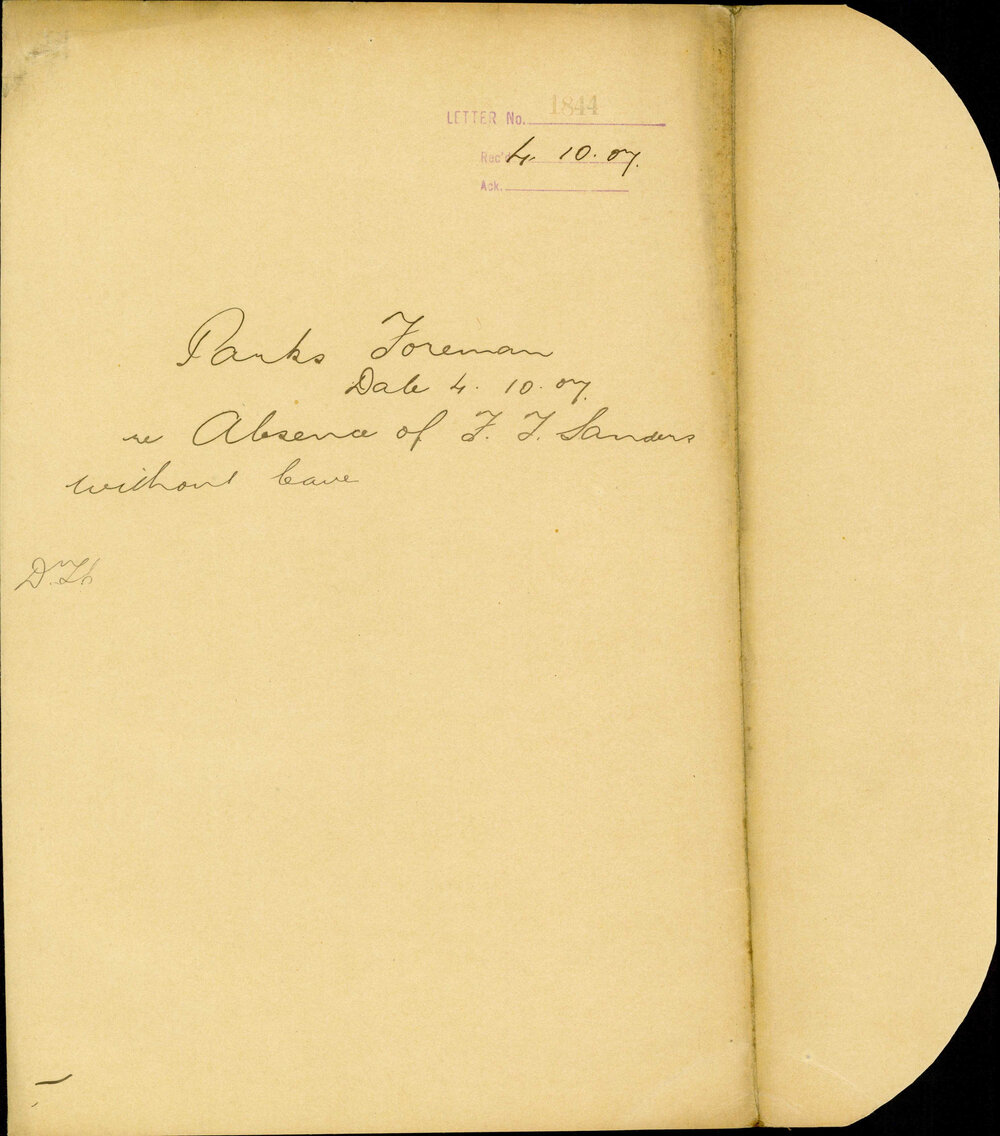 LETTER No. 1844
Rec'd 4. 10. 07.
Ack.
Parks Foreman
Date 4. 10. 07.
re Absence of F. F. Sanders
without leave